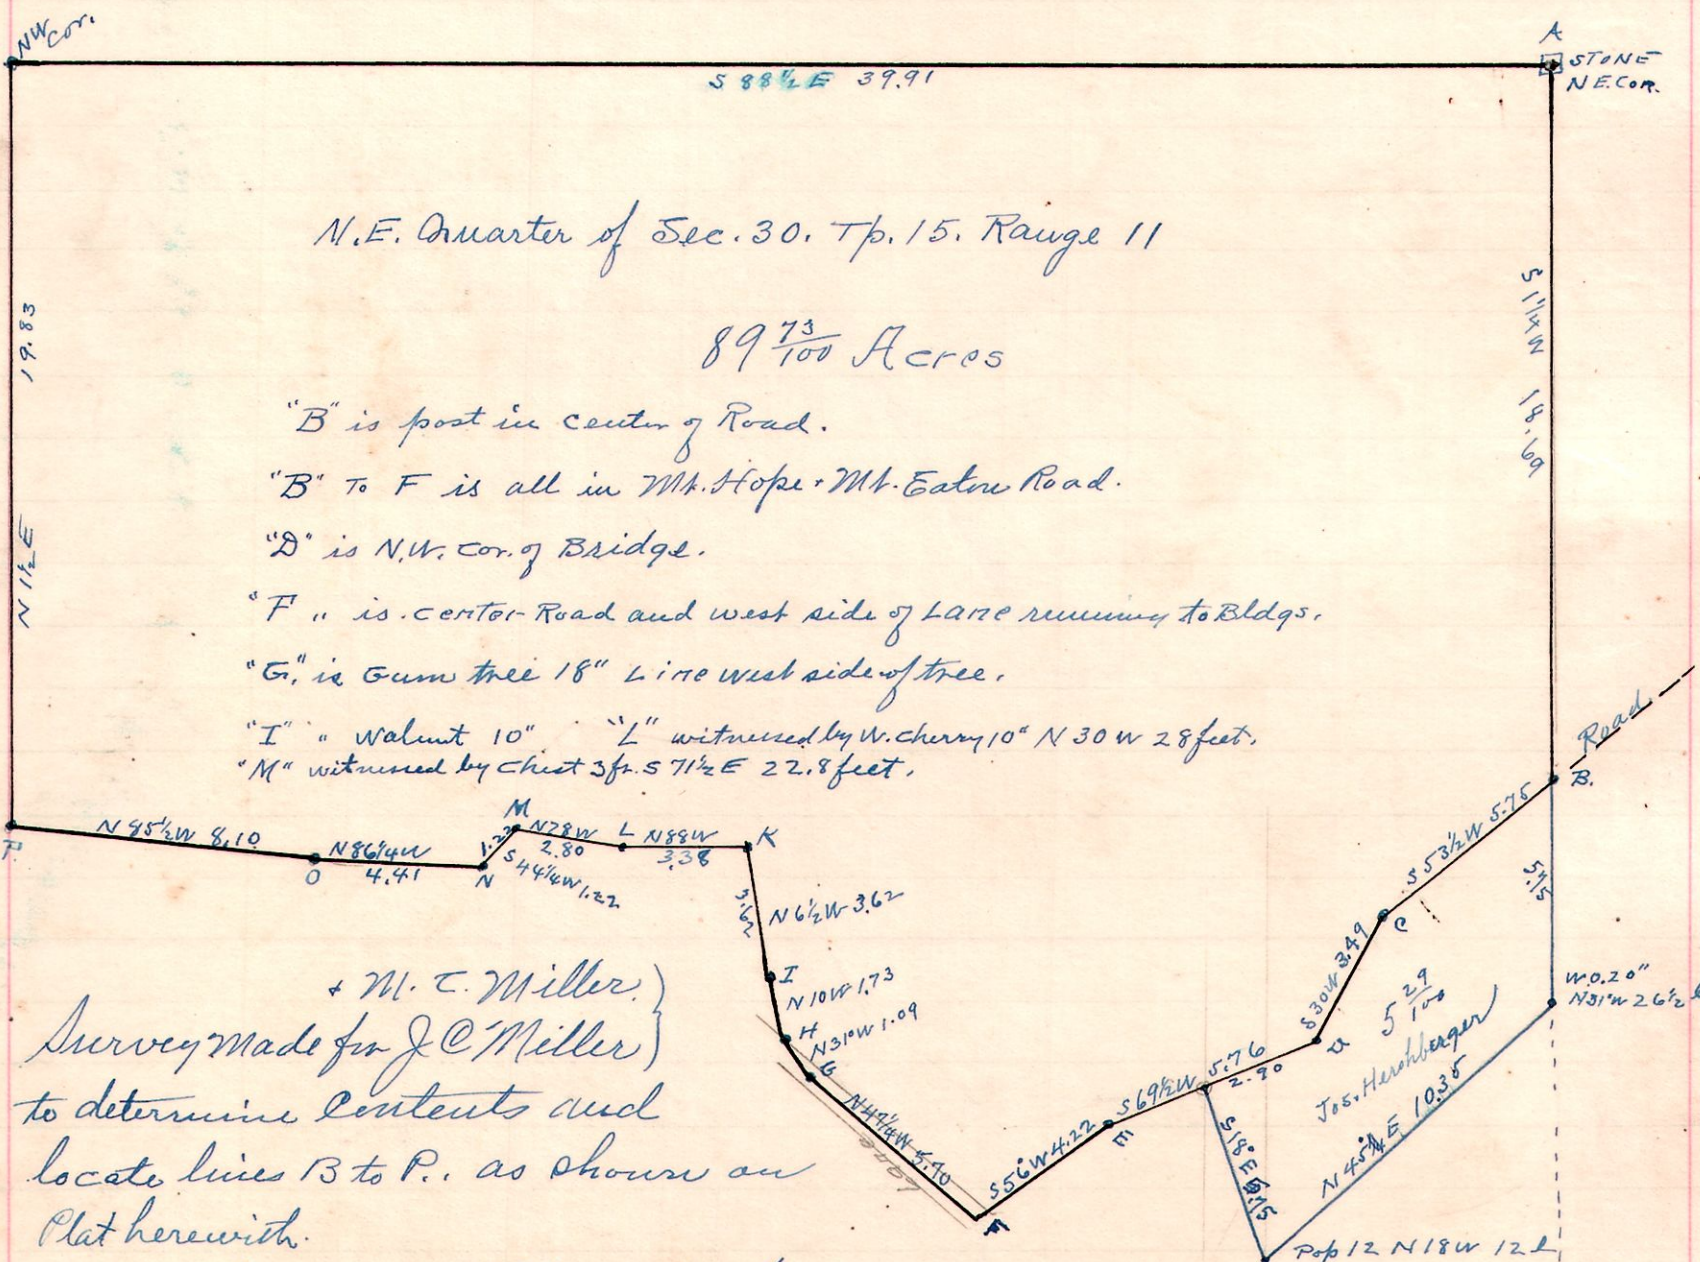 NW Cor.
A
STONE
N E. COR.
S 88½ E 39.91
N.E. Quarter of Sec. 30. Tp. 15. Range 11
89 73/100 Acres
19.83
N 1½ E
S 1¼ W 18.69
"B" is post in center of Road.
"B" To F is all in Mt. Hope & Mt. Eaton Road.
"D" is N.W. cor. of Bridge.
"F" is center Road and west side of Lane running to Bldgs.
"G" is Gum tree 18" Line west side of tree.
"I" " Walnut 10" "L" witnessed by W. cherry 10" N 30 W 28 feet.
"M" witnessed by Chest 3 ft. S 71½ E 22.8 feet.
Road
B.
P.
N 85½ W 8.10
O
N 86¼ W
4.41
N
1.22
S 44¼ W 1.22
M
N 78 W
2.80
L
N 88 W
3.38
K
3.62
N 6½ W 3.62
I
N 10 W 1.73
H
N 31° W 1.09
G
N 47¼ W 5.70
Lane
F
S 56° W 4.22
E
S 69½ W 5.76
2.90
D
S 30 W 3.49
C
S 53½ W 5.75
5.15
W.O. 20"
N 31° W 26½
5 29/100
Jos. Hershberger
N 45¼ E 10.35
S 18° E
Pop 12 N 18 W 12 l
& M. T. Miller
Survey Made for J C Miller
to determine Contents and
locate lines B to P.. as shown on
Plat herewith.